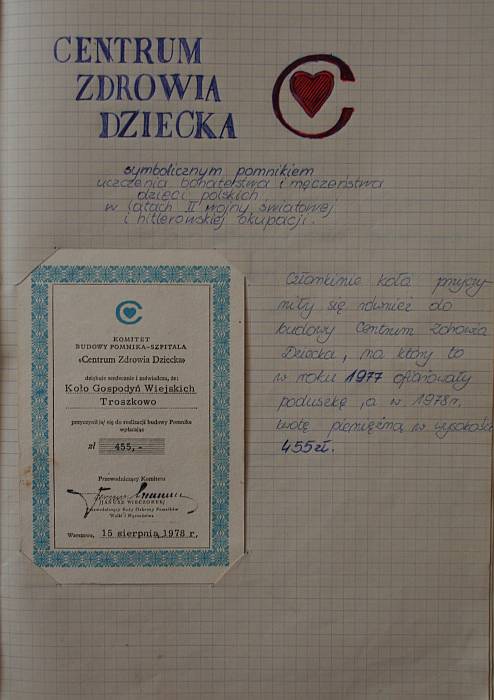 CENTRUM
ZDROWIA
DZIECKA
symbolicznym pomnikiem
uczczenia bohaterstwa i męczeństwa
dzieci polskich
w latach II wojny światowej
i hitlerowskiej okupacji.
KOMITET
BUDOWY POMNIKA-SZPITALA
«Centrum Zdrowia Dziecka»
dziękuje serdecznie i zaświadcza, że:
Koło Gospodyń Wiejskich
Troszkowo
przyczynił się do realizacji budowy Pomnika
wpłacając
zł 455,-
Przewodniczący Komitetu
(JANUSZ WIECZOREK)
Przewodniczący Rady Ochrony Pomników
Walki i Męczeństwa
Warszawa, 15 sierpnia 1978 r,
Członkinie koła przyczy
niły się również do
budowy Centrum Zdrowia
Dziecka, na który to
w roku 1977 ofiarowały
poduszkę, a w 1978 r.
kwotę pieniężną w wysokości
455 zł.